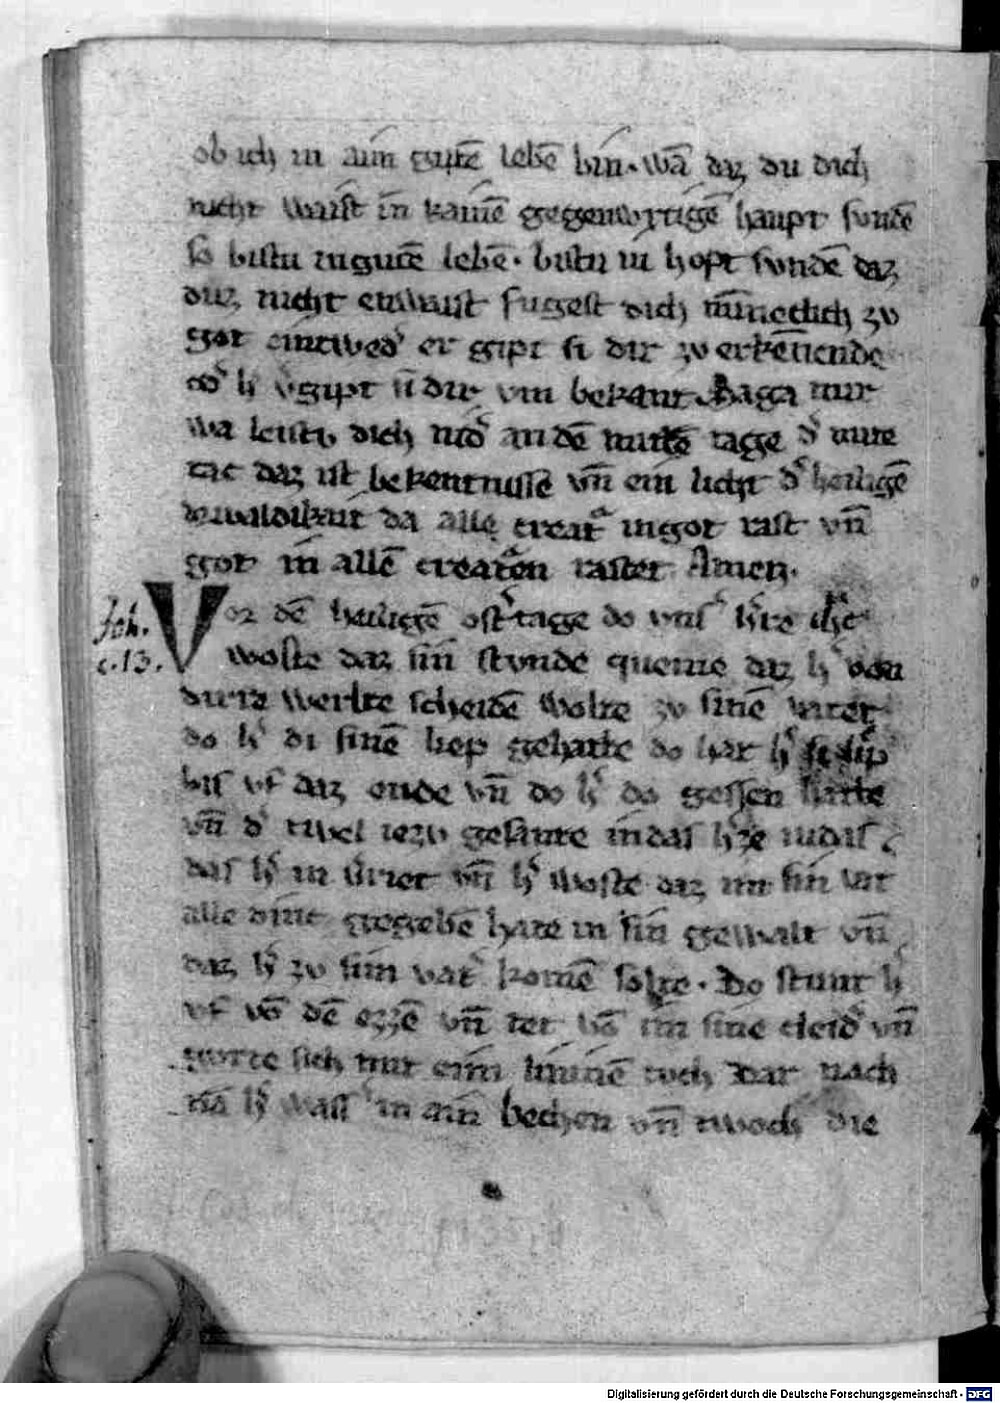 ob ich in aim gutē lebē bin · wā daz du dich
nicht waist in kainē gegenwrtigē haupt sundē
so bistu in gutē lebē · bistu in hopt sundē daz
duz nicht enwaist fugest dich mīneclich zv
got eintwedˀ er gipt si dir zv erkēnende
odˀ hˀ vˀgipt si dir vm bekant · Saga mir
wa leistu dich nidˀ an dē mittē tage dˀ mitte
tac daz ist bekentnusse vn̄ ein licht dˀ heiligē
da alle creatˀ in got rast vn̄
got in allē creatˀen rastet Amen ·
Joh. c. 13.
Vor dē heiligē ostˀtage do vnsˀ hˀre ihˀc
woste daz sin stvnde queme daz hˀ von
dirre werlte scheidē wolte zv sinē vater
do hˀ di sinē liep gehatte do hat hˀ si liep
bis vf daz ende vn̄ do hˀ do gessen hatte
vn̄ dˀ tivel iezv gesante in das hˀze iudas
das hˀ in vˀriet vn̄ hˀ woste daz im sin vat
alle dinc gegebē hate in sin gewalt vn̄
daz hˀ zv sim vatˀ komē solte · Do stunt hˀ
vf vō dē ezzē vn̄ let vō im sine cleidˀ vn̄
gurte sich mit eim lininē tvch Dar nach
nā hˀ wassˀ in ain bechen vn̄ twoch die
Digitalisierung gefördert durch die Deutsche Forschungsgemeinschaft - DFG